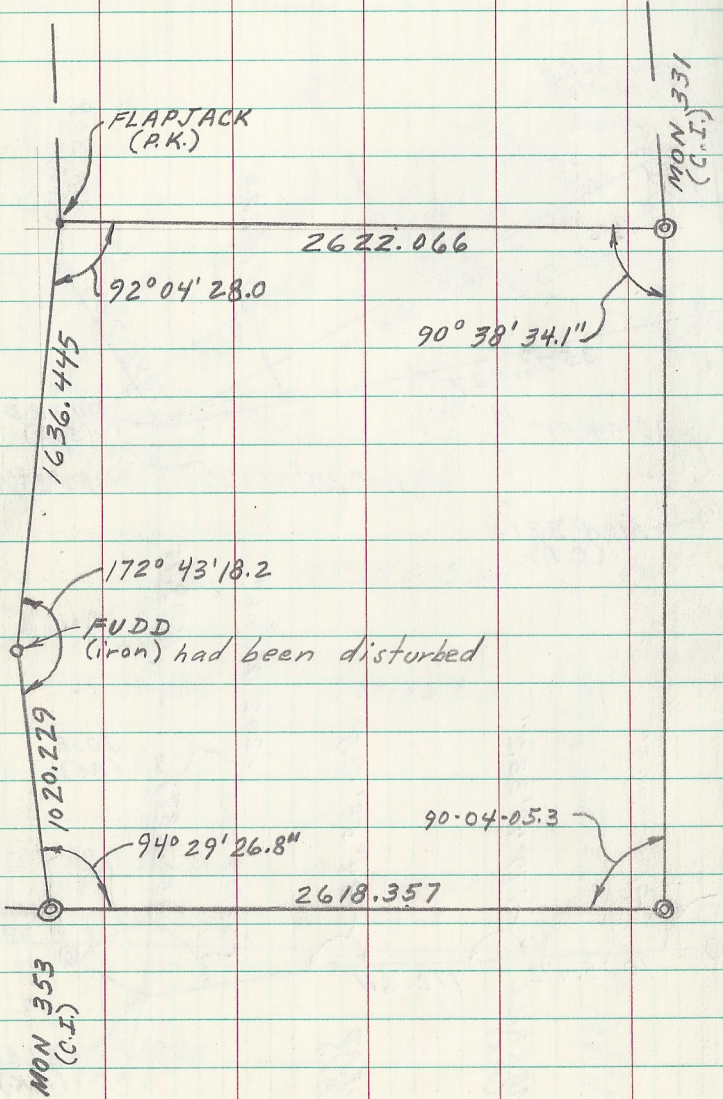 FLAPJACK
(P.K.)
MON 331
(C.I.)
2622.066
92°04'28.0
90° 38' 34.1"
1636.445
172° 43'18.2
FUDD
(iron) had been disturbed
1020.229
90-04-05.3
94° 29' 26.8"
2618.357
MON 353
(C.I.)